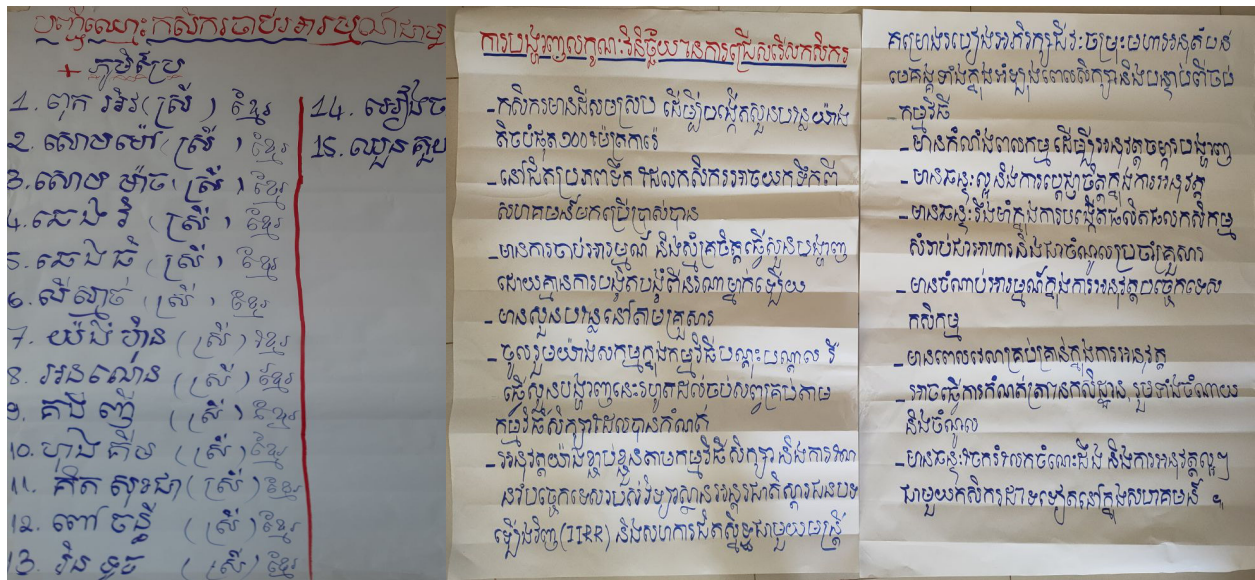 បញ្ជីឈ្មោះកសិករចាប់អារម្មណ៍ជាមួ
+ ភូមិព្រៃ
1. ពុក អឿវ (ស្រី) ខ្មែរ
2. សោមម៉ៅ (ស្រី) ខ្មែរ
3. សោម ម៉ាច (ស្រី) ខ្មែរ
4. ឆេង រី (ស្រី) ខ្មែរ
5. ឆេង ធំ (ស្រី) ខ្មែរ
6. លី ស្មាច់ (ស្រី) ខ្មែរ
7. យ៉ង់ ហ៊ុន (ស្រី) ខ្មែរ
8. អន ណេន (ស្រី) ខ្មែរ
9. គង់ ញ៉ (ស្រី) ខ្មែរ
10. ហុង គឹម (ស្រី) ខ្មែរ
11. គិត សុវជា (ស្រី) ខ្មែរ
12. ពៅ ចន្ធី (ស្រី) ខ្មែរ
13. រិន ទូច (ស្រី) ខ្មែរ
14. អឿងច
15. ឈួន គួយ
ការបង្ហាញលក្ខណៈវិនិច្ឆ័យនៃការជ្រើសរើសកសិករ
-កសិករមានដីសមស្រប ដើម្បីបង្កើតសួនបន្លែយ៉ាង
តិចបំផុត ១០០ ម៉ែត្រការ៉េ
-នៅជិតប្រភពទឹក ដែលកសិករអាចយកទឹកពី
សហគមន៍មកប្រើប្រាស់បាន
-មានការចាប់អារម្មណ៍ និងស្ម័គ្រចិត្តធ្វើសួនបង្ហាញ
ដោយគ្មានការបង្ខិតបង្ខំពីនរណាម្នាក់ឡើយ
-មានសួនបន្លែនៅតាមគ្រួសារ
-ចូលរួមយ៉ាងសកម្មក្នុងកម្មវិធីបណ្តុះបណ្តាល រឺ
ធ្វើសួនបង្ហាញនេះរហូតដល់ចប់សព្វគ្រប់តាម
កម្មវិធីសិក្សាដែលបានកំណត់
-អនុវត្តយ៉ាងខ្ជាប់ខ្ជួនតាមកម្មវិធីសិក្សា និងការណែ
នាំបច្ចេកទេសរបស់វិទ្យាស្ថានអន្តរជាតិស្តារជនបទ
ឡើងវិញ (IIRR) និងសហការជិតស្និទ្ធជាមួយមន្ត្រី
គម្រោងរបៀងអភិរក្សជីវៈចម្រុះមហាអនុតំបន់
មេគង្គទាំងក្នុងអំឡុងពេលសិក្សានិងបន្ទាប់ពីចប់
កម្មវិធី
-មានកំលាំងពលកម្មដើម្បីអនុវត្តចម្ការបង្ហាញ
-មានឆន្ទៈល្អ និងការប្តេជ្ញាចិត្តក្នុងការអនុវត្ត
-មានឆន្ទៈរឹងមាំក្នុងការបង្កើតផលិតផលកសិកម្ម
សំរាប់ជាអាហារនិងជាចំណូលប្រចាំគ្រួសារ
-មានចំណាប់អារម្មណ៍ក្នុងការអនុវត្តបច្ចេកទេស
កសិកម្ម
-មានពេលវេលាគ្រប់គ្រាន់ក្នុងការអនុវត្ត
-អាចធ្វើការកំណត់ត្រានៃកសិដ្ឋាន រួមទាំងចំណាយ
និងចំណូល
-មានឆន្ទៈចែករំលែកចំណេះដឹង និងការអនុវត្តល្អៗ
ជាមួយកសិករដទៃទៀតនៅក្នុងសហគមន៍ ។